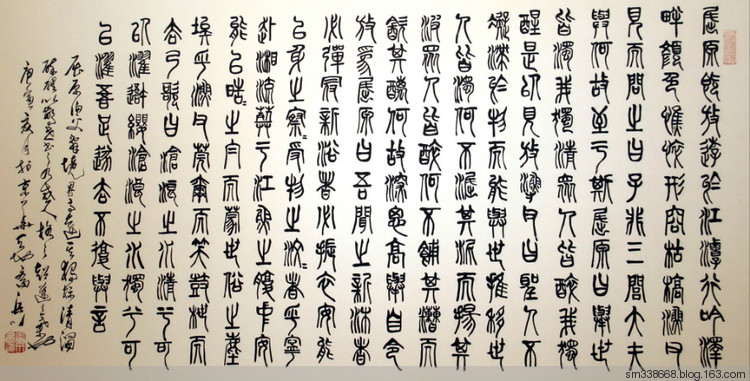 屈原既放遊於江潭行吟澤
畔顔色憔悴形容枯槁漁父
見而問之曰子非三閭大夫
與何故至於斯屈原曰舉世
皆濁我獨清衆人皆醉我獨
醒是以見放漁父曰聖人不
凝滯於物而能與世推移世
人皆濁何不淈其泥而揚其
波衆人皆醉何不餔其糟而
歠其醨何故深思高舉自令
放爲屈原曰吾聞之新沐者
必彈冠新浴者必振衣安能
以身之察〻受物之汶〻者乎寧
赴湘流葬于江魚之腹中安
能以皓〻之白而蒙世俗之塵
埃乎漁父莞爾而笑鼓枻而
去乃歌曰滄浪之水清兮可
以濯吾纓滄浪之水濁兮可
以濯吾足遂去不復與言
屈原漁父辭境界高遠
庚寅夏月於京
sm338668.blog.163.com